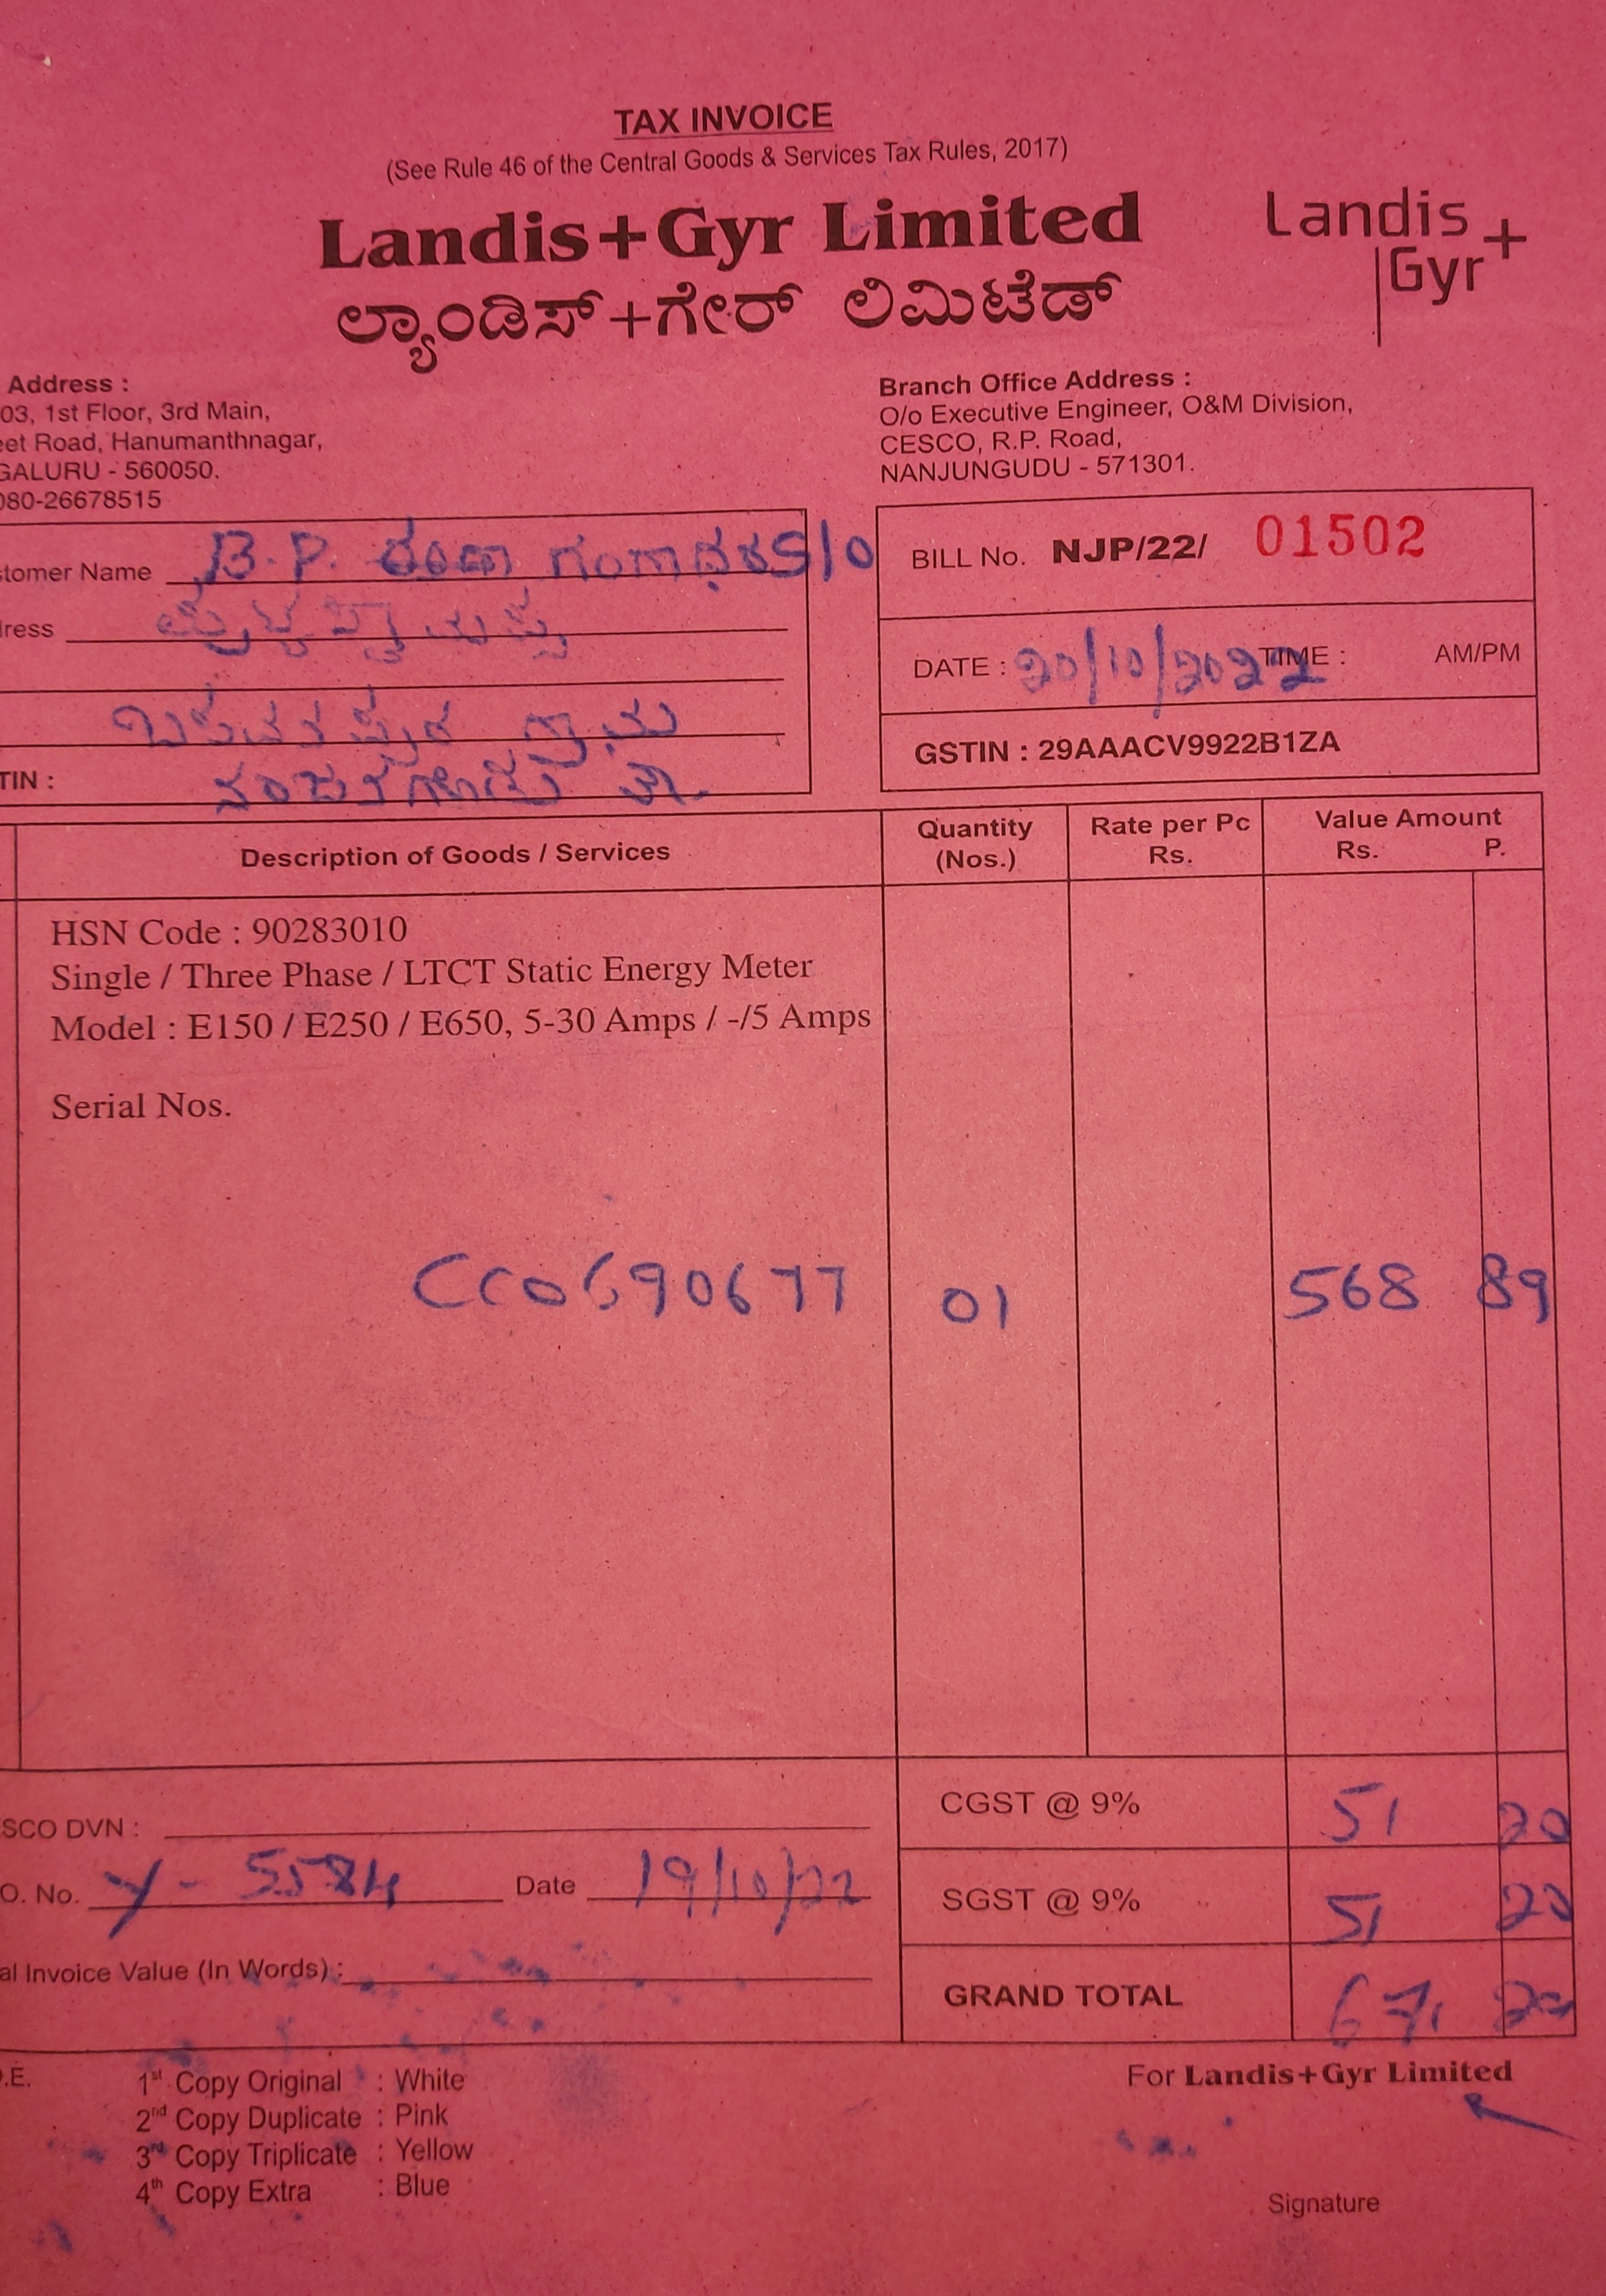 TAX INVOICE
(See Rule 46 of the Central Goods & Services Tax Rules, 2017)
Landis+Gyr Limited
Landis+
Gyr
ಲ್ಯಾಂಡಿಸ್+ಗೇರ್ ಲಿಮಿಟೆಡ್
Address :
03, 1st Floor, 3rd Main,
eet Road, Hanumanthnagar,
GALURU - 560050.
080-26678515
Branch Office Address :
O/o Executive Engineer, O&M Division,
CESCO, R.P. Road,
NANJUNGUDU - 571301.
tomer Name B.P. S/o
ress
TIN :
BILL No. NJP/22/ 01502
DATE : 20/10/2022 TIME : AM/PM
GSTIN : 29AAACV9922B1ZA
Description of Goods / Services
Quantity (Nos.)
Rate per Pc Rs.
Value Amount Rs. P.
HSN Code : 90283010
Single / Three Phase / LTCT Static Energy Meter
Model : E150 / E250 / E650, 5-30 Amps / -/5 Amps
Serial Nos.
CC0690677 01 568 89
SCO DVN :
CGST @ 9% 51 20
O. No. Y - 5584 Date 19/10/22
SGST @ 9% 51 20
al Invoice Value (In Words) :
GRAND TOTAL 671
.E.
1st Copy Original : White
2nd Copy Duplicate : Pink
3rd Copy Triplicate : Yellow
4th Copy Extra : Blue
For Landis+Gyr Limited
Signature